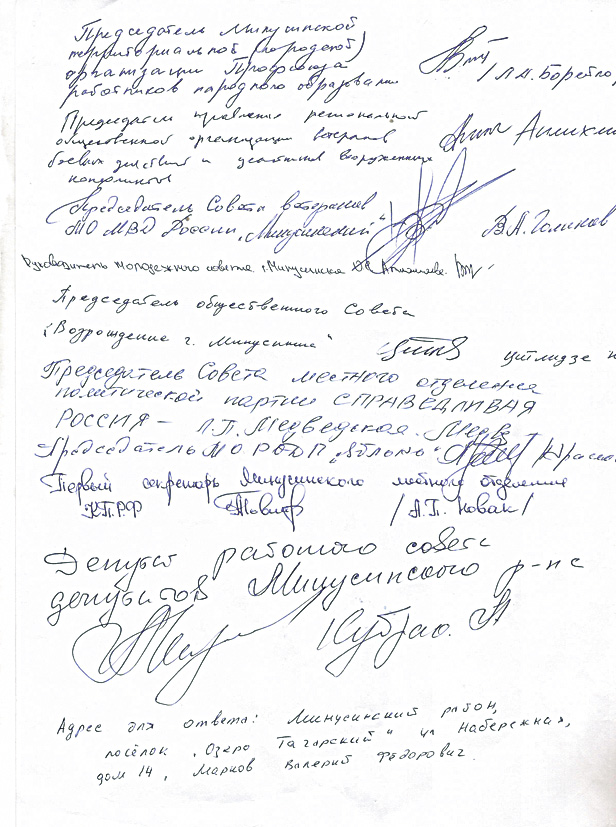 Председатель Минусинской
территориальной (городской)
организации Профсоюза
работников народного образования
/ Л.Н.
Председатель правления региональной
общественной организации ветеранов
боевых действий и участников вооруженных
конфликтов
Председатель Совета ветеранов
МО МВД России „Минусинский“
В.А.
Руководитель молодежного совета г. Минусинска
Председатель общественного Совета
„Возрождение г. Минусинска“
Председатель Совета местного отделения
политической партии СПРАВЕДЛИВАЯ
РОССИЯ – Л.П. Медведская.
Председатель МО РОДП „Яблоко“
Первый секретарь Минусинского местного отделения
КПРФ / А.П. Новак /
Депутат районного совета
депутатов Минусинского р-на
Адрес для ответа: Минусинский район,
посёлок „Озеро Тагарский“ ул Набережная,
дом 14, Марков Валерий Федорович.